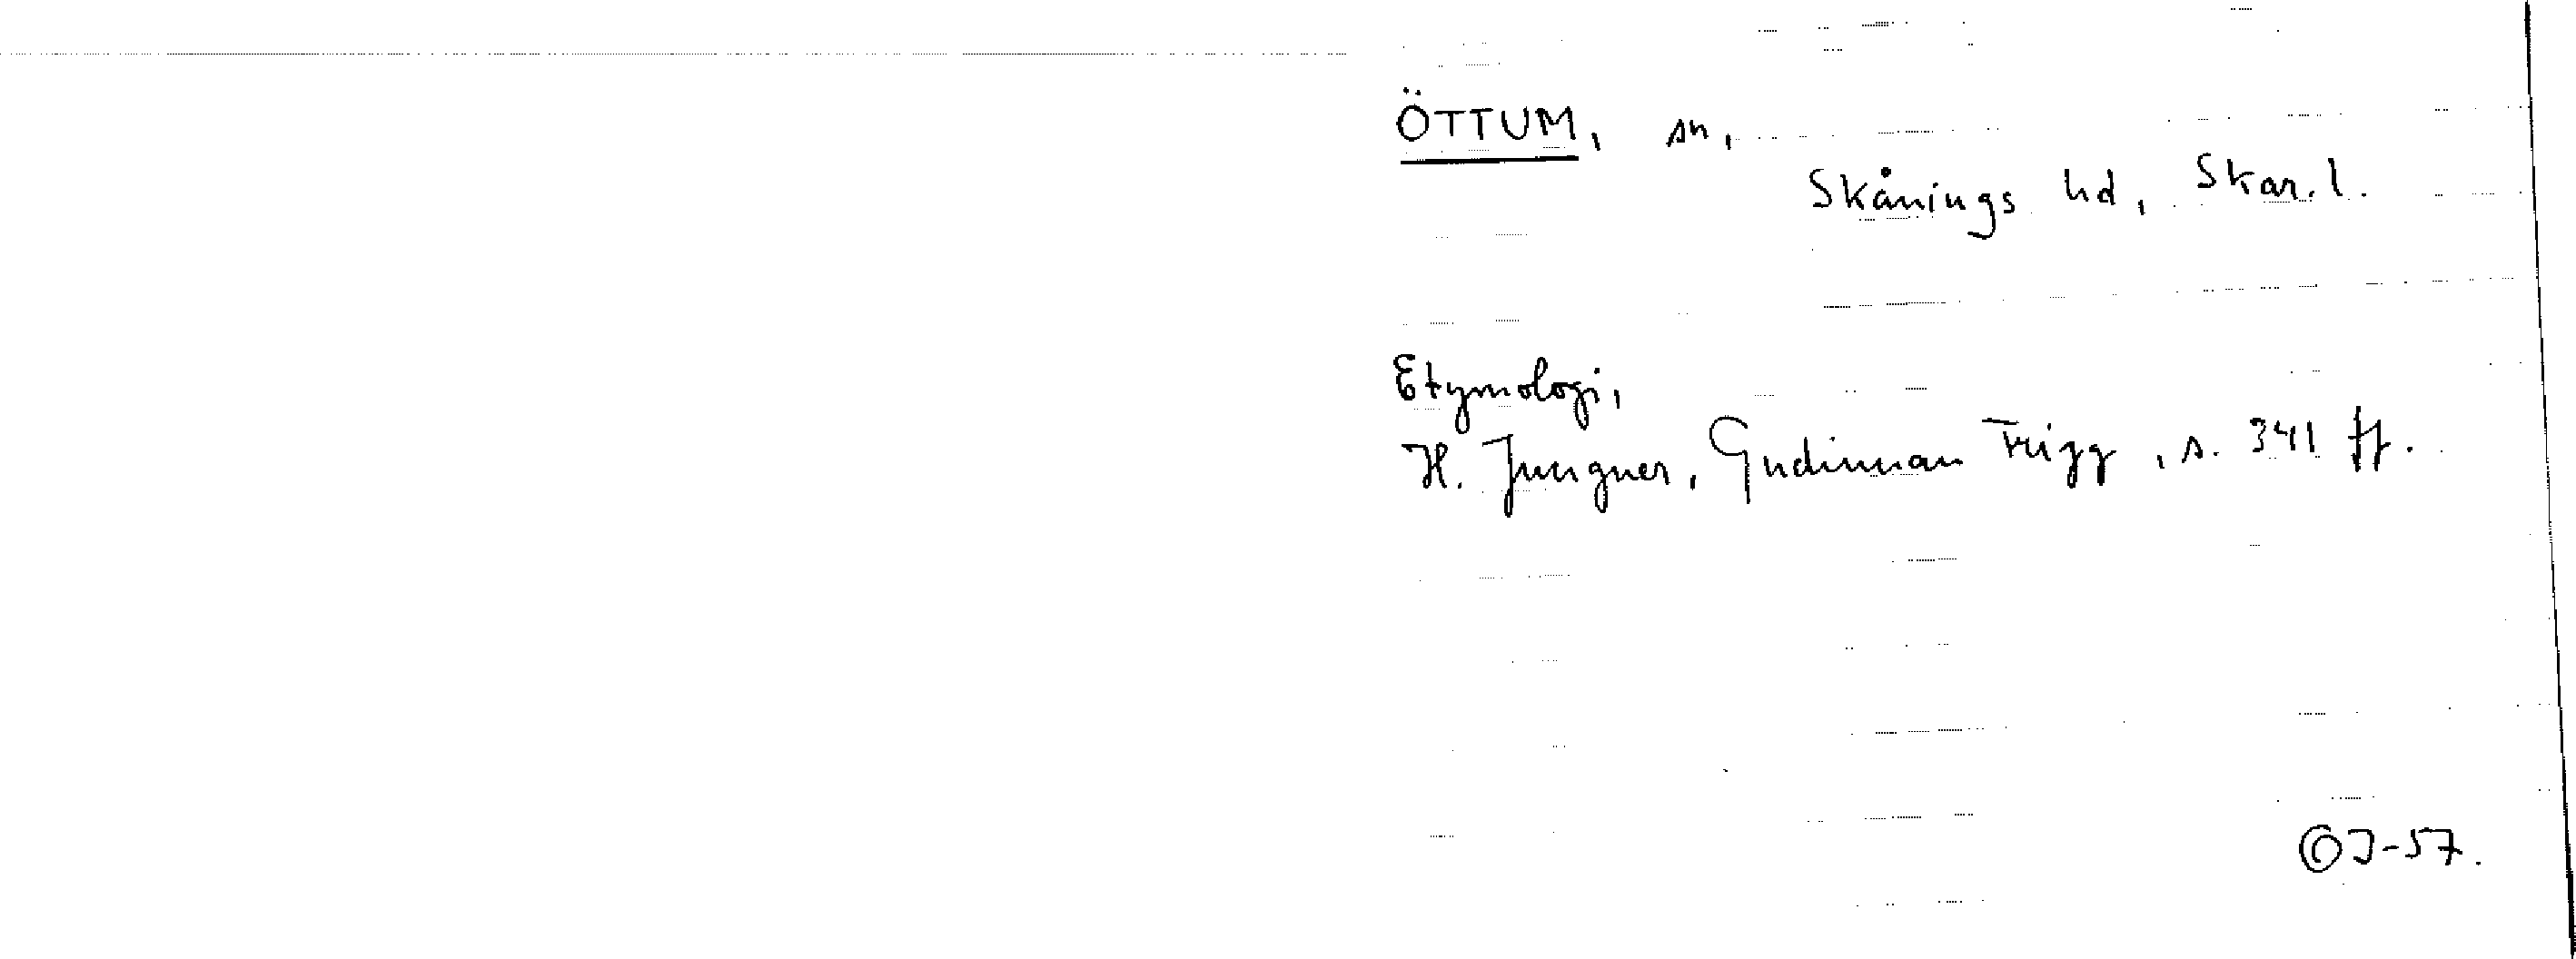 ÖTTUM, sn,
Skånings hd, Skar. l.
Etymologi,
H. Jungner, Gudinnan Frigg, s. 341 ff.
OJ-57.